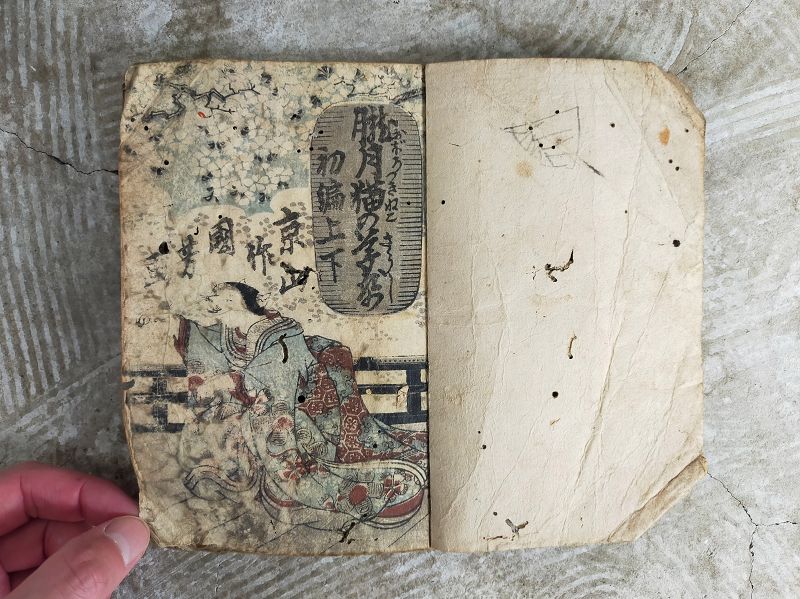 おぼろづきねこ さうし
朧月猫の草紙
初編上下
京山
作
國
芳